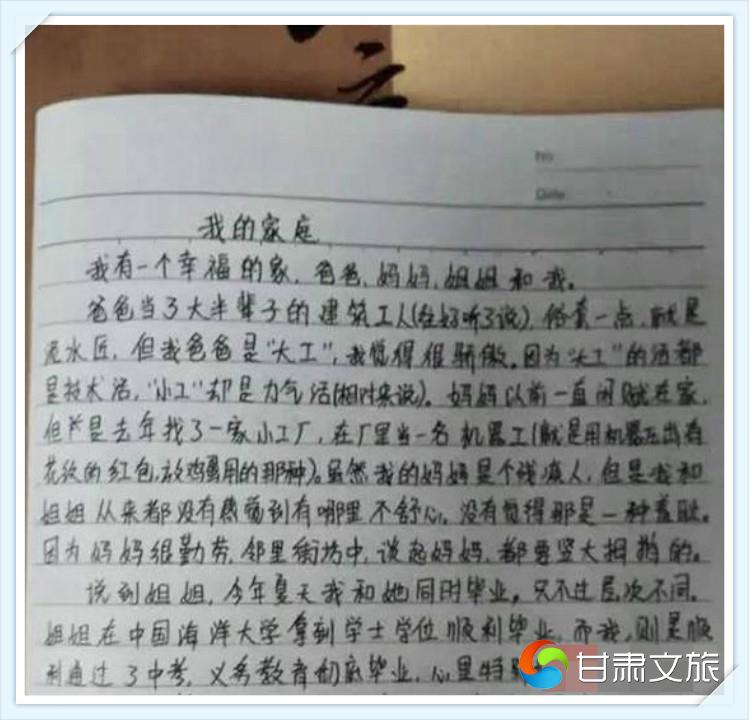 No
Date
我的家庭
我有一个幸福的家,爸爸,妈妈,姐姐和我。
爸爸当了大半辈子的建筑工人(往好听了说),俗套一点,就是
泥水匠,但我爸爸是“大工”,我觉得很骄傲。因为“大工”的活都
是技术活,“小工”却是力气活(相对来说)。妈妈以前一直闲赋在家,
但是去年找了一家小工厂,在厂里当一名机器工(就是用机器压出有
花纹的红包,放鸡蛋用的那种)。虽然我的妈妈是个残疾人,但是我和
姐姐从来都没有感觉到有哪里不舒心,没有觉得那是一种羞耻。
因为妈妈很勤劳,邻里街坊中,谈起妈妈,都要竖大拇指的。
说到姐姐,今年夏天我和她同时毕业,只不过层次不同。
姐姐在中国海洋大学拿到学士学位顺利毕业,而我,则是顺
利通过了中考,义务教育彻底毕业,心里特别
甘肃文旅